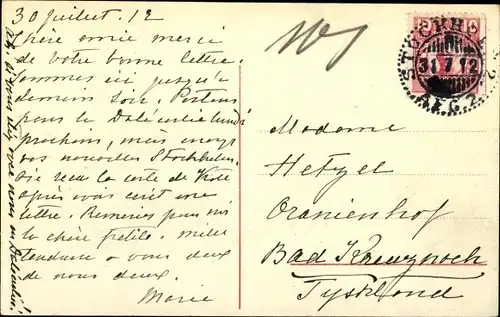 30 juillet. 12
Chère amie merci
de votre bonne lettre.
sommes ici jusqu'à
demain soir. Partons
pour la Dalécarlie lundi
prochain, mais envoyez
vos nouvelles Stockholm.
reçu la carte de
après vous écrit une
lettre. Remerciez pour moi
la chère petite. mille
tendresse à vous deux
de nous deux.
Marie
si vous étiez avec nous en Dalécarlie!
STOCKHOLM
31 7 12
AFG. 2.
Madame
Hetzel
Oranienhof
Bad Kreuznach
Tyskland